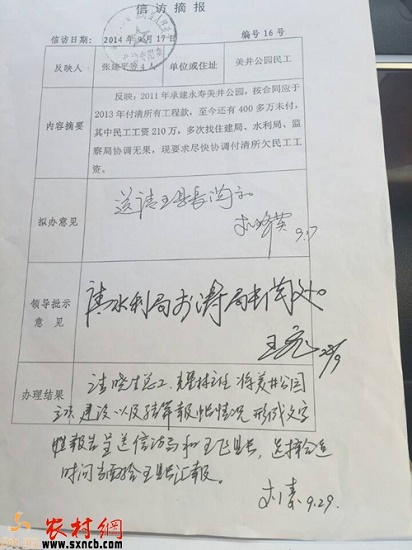 信访摘报
信访日期： 2014年9月17日 编号16号
反映人 张建平等4人 单位或住址 美井公园民工
内容摘要
反映，2011年承建永寿美井公园，按合同应于
2013年付清所有工程款，至今还有400多万未付，
其中民工工资210万，多次找住建局、水利局、监
察局协调无果，现要求尽快协调付清所欠民工工
资。
拟办意见
送请王县长阅示。
9.17
领导批示
意见
请水利局 局长阅处。
办理结果
请晓生总工、 林主任 将美井公园
建设以及结算报账情况形成文字
报告呈送信访局和王飞县长，选择合适
时间当面给王县长汇报。
9.29.
农村網
www.sxncb.com